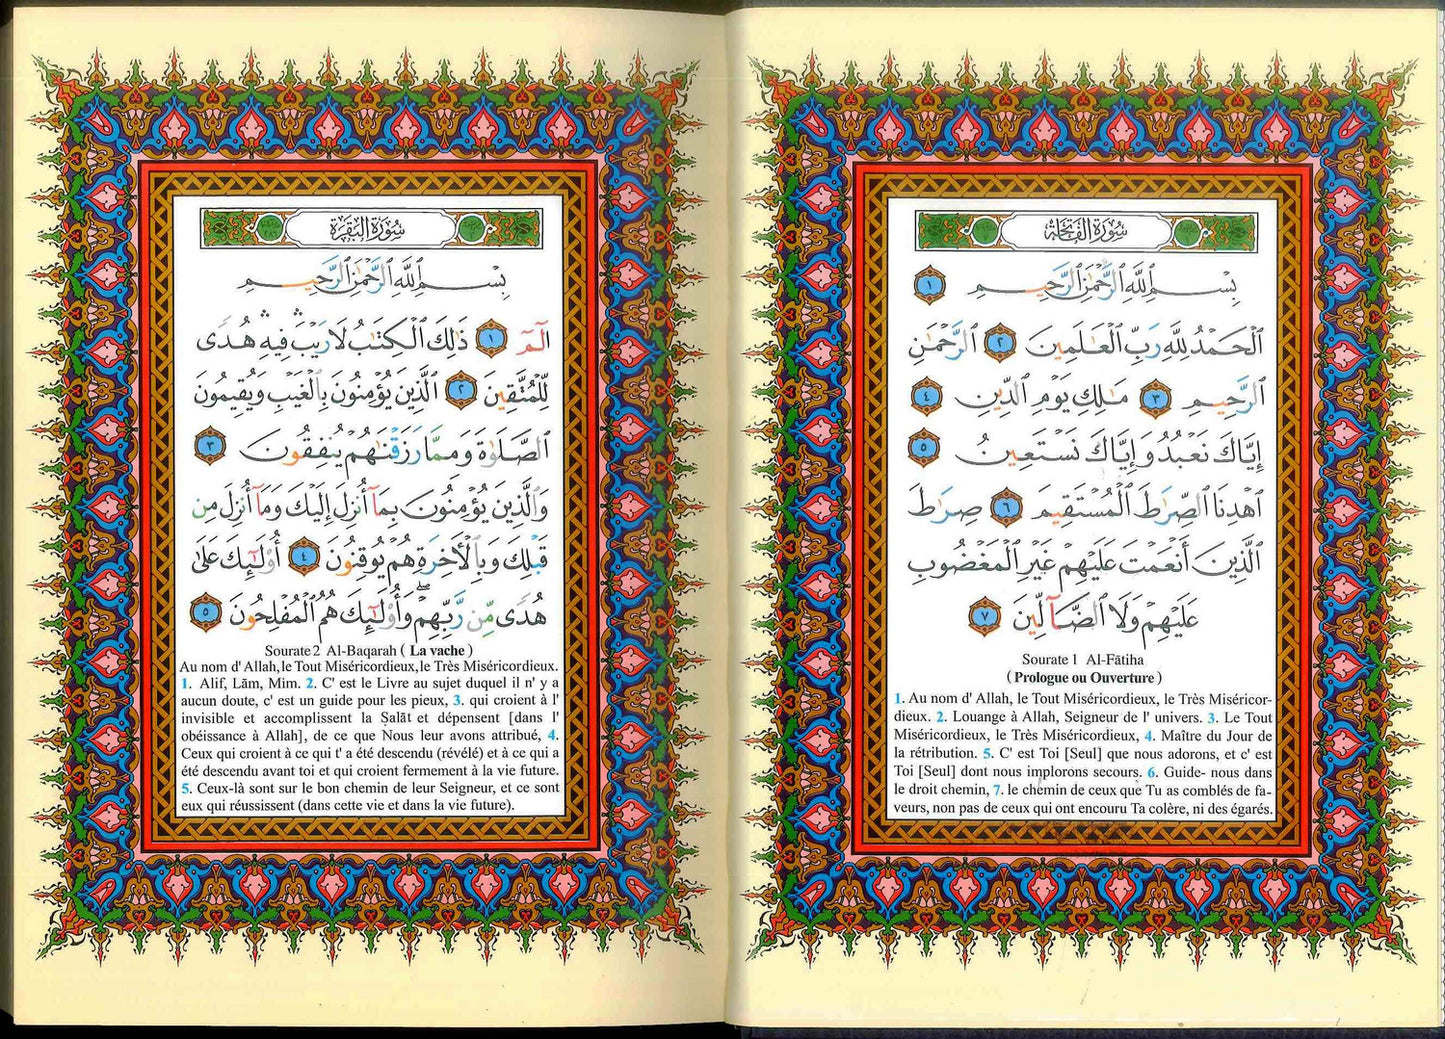 سُورَةُ الفَاتِحَة
بِسْمِ ٱللَّهِ ٱلرَّحْمَٰنِ ٱلرَّحِيمِ ١
ٱلْحَمْدُ لِلَّهِ رَبِّ ٱلْعَٰلَمِينَ ٢ ٱلرَّحْمَٰنِ
ٱلرَّحِيمِ ٣ مَٰلِكِ يَوْمِ ٱلدِّينِ ٤
إِيَّاكَ نَعْبُدُ وَإِيَّاكَ نَسْتَعِينُ ٥
ٱهْدِنَا ٱلصِّرَٰطَ ٱلْمُسْتَقِيمَ ٦ صِرَٰطَ
ٱلَّذِينَ أَنْعَمْتَ عَلَيْهِمْ غَيْرِ ٱلْمَغْضُوبِ
عَلَيْهِمْ وَلَا ٱلضَّآلِّينَ ٧
Sourate 1 Al-Fātiha
( Prologue ou Ouverture )
1. Au nom d' Allah, le Tout Miséricordieux, le Très Miséricor-
dieux. 2. Louange à Allah, Seigneur de l' univers. 3. Le Tout
Miséricordieux, le Très Miséricordieux, 4. Maître du Jour de
la rétribution. 5. C' est Toi [Seul] que nous adorons, et c' est
Toi [Seul] dont nous implorons secours. 6. Guide- nous dans
le droit chemin, 7. le chemin de ceux que Tu as comblés de fa-
veurs, non pas de ceux qui ont encouru Ta colère, ni des égarés.
سُورَةُ البَقَرَة
بِسْمِ ٱللَّهِ ٱلرَّحْمَٰنِ ٱلرَّحِيمِ
الٓمٓ ١ ذَٰلِكَ ٱلْكِتَٰبُ لَا رَيْبَ ۛ فِيهِ ۛ هُدًى
لِّلْمُتَّقِينَ ٢ ٱلَّذِينَ يُؤْمِنُونَ بِٱلْغَيْبِ وَيُقِيمُونَ
ٱلصَّلَوٰةَ وَمِمَّا رَزَقْنَٰهُمْ يُنفِقُونَ ٣
وَٱلَّذِينَ يُؤْمِنُونَ بِمَآ أُنزِلَ إِلَيْكَ وَمَآ أُنزِلَ مِن
قَبْلِكَ وَبِٱلْآخِرَةِ هُمْ يُوقِنُونَ ٤ أُو۟لَٰٓئِكَ عَلَىٰ
هُدًى مِّن رَّبِّهِمْ ۖ وَأُو۟لَٰٓئِكَ هُمُ ٱلْمُفْلِحُونَ ٥
Sourate 2 Al-Baqarah ( La vache )
Au nom d' Allah, le Tout Miséricordieux, le Très Miséricordieux.
1. Alif, Lām, Mim. 2. C' est le Livre au sujet duquel il n' y a
aucun doute, c' est un guide pour les pieux, 3. qui croient à l'
invisible et accomplissent la Ṣalāt et dépensent [dans l'
obéissance à Allah], de ce que Nous leur avons attribué, 4.
Ceux qui croient à ce qui t' a été descendu (révélé) et à ce qui a
été descendu avant toi et qui croient fermement à la vie future.
5. Ceux-là sont sur le bon chemin de leur Seigneur, et ce sont
eux qui réussissent (dans cette vie et dans la vie future).